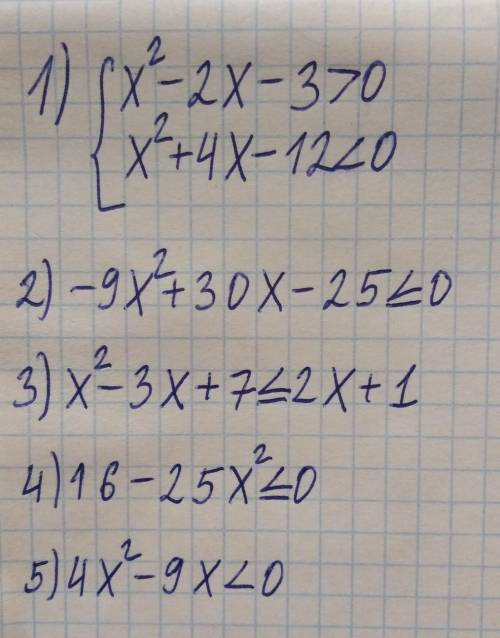 1) { x² - 2x - 3 > 0
x² + 4x - 12 < 0
2) -9x² + 30x - 25 ≤ 0
3) x² - 3x + 7 ≤ 2x + 1
4) 16 - 25x² ≤ 0
5) 4x² - 9x < 0